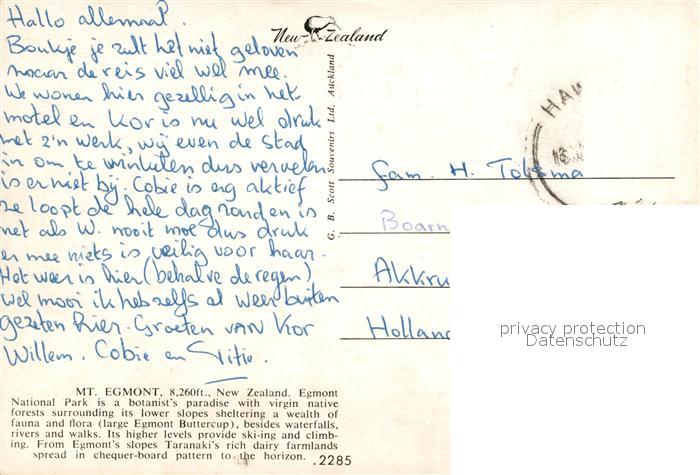 Hallo allemaal.
Boukje je zult het niet geloven
maar de reis viel wel mee.
We wonen hier gezellig in het
motel en Kor is nu wel druk
met z'n werk, wij even de stad
in om te winkelen dus vervelen
is er niet bij. Cobie is erg aktief
ze loopt de hele dag rond en is
net als W. nooit moe dus druk
en mee niets is veilig voor haar.
Het weer is hier (behalve de regen)
wel mooi ik heb zelfs al weer buiten
gezeten hier. Groeten van Kor
Willem. Cobie en
MT. EGMONT, 8,260ft., New Zealand. Egmont
National Park is a botanist's paradise with virgin native
forests surrounding its lower slopes sheltering a wealth of
fauna and flora (large Egmont Buttercup), besides waterfalls,
rivers and walks. Its higher levels provide ski-ing and climb-
ing. From Egmont's slopes Taranaki's rich dairy farmlands
spread in chequer-board pattern to the horizon. .2285
New Zealand
G. B. Scott Souvenirs Ltd. Auckland
HAW
fam. H. Tolsma
Boarn
Akkru
Holland
privacy protection
Datenschutz